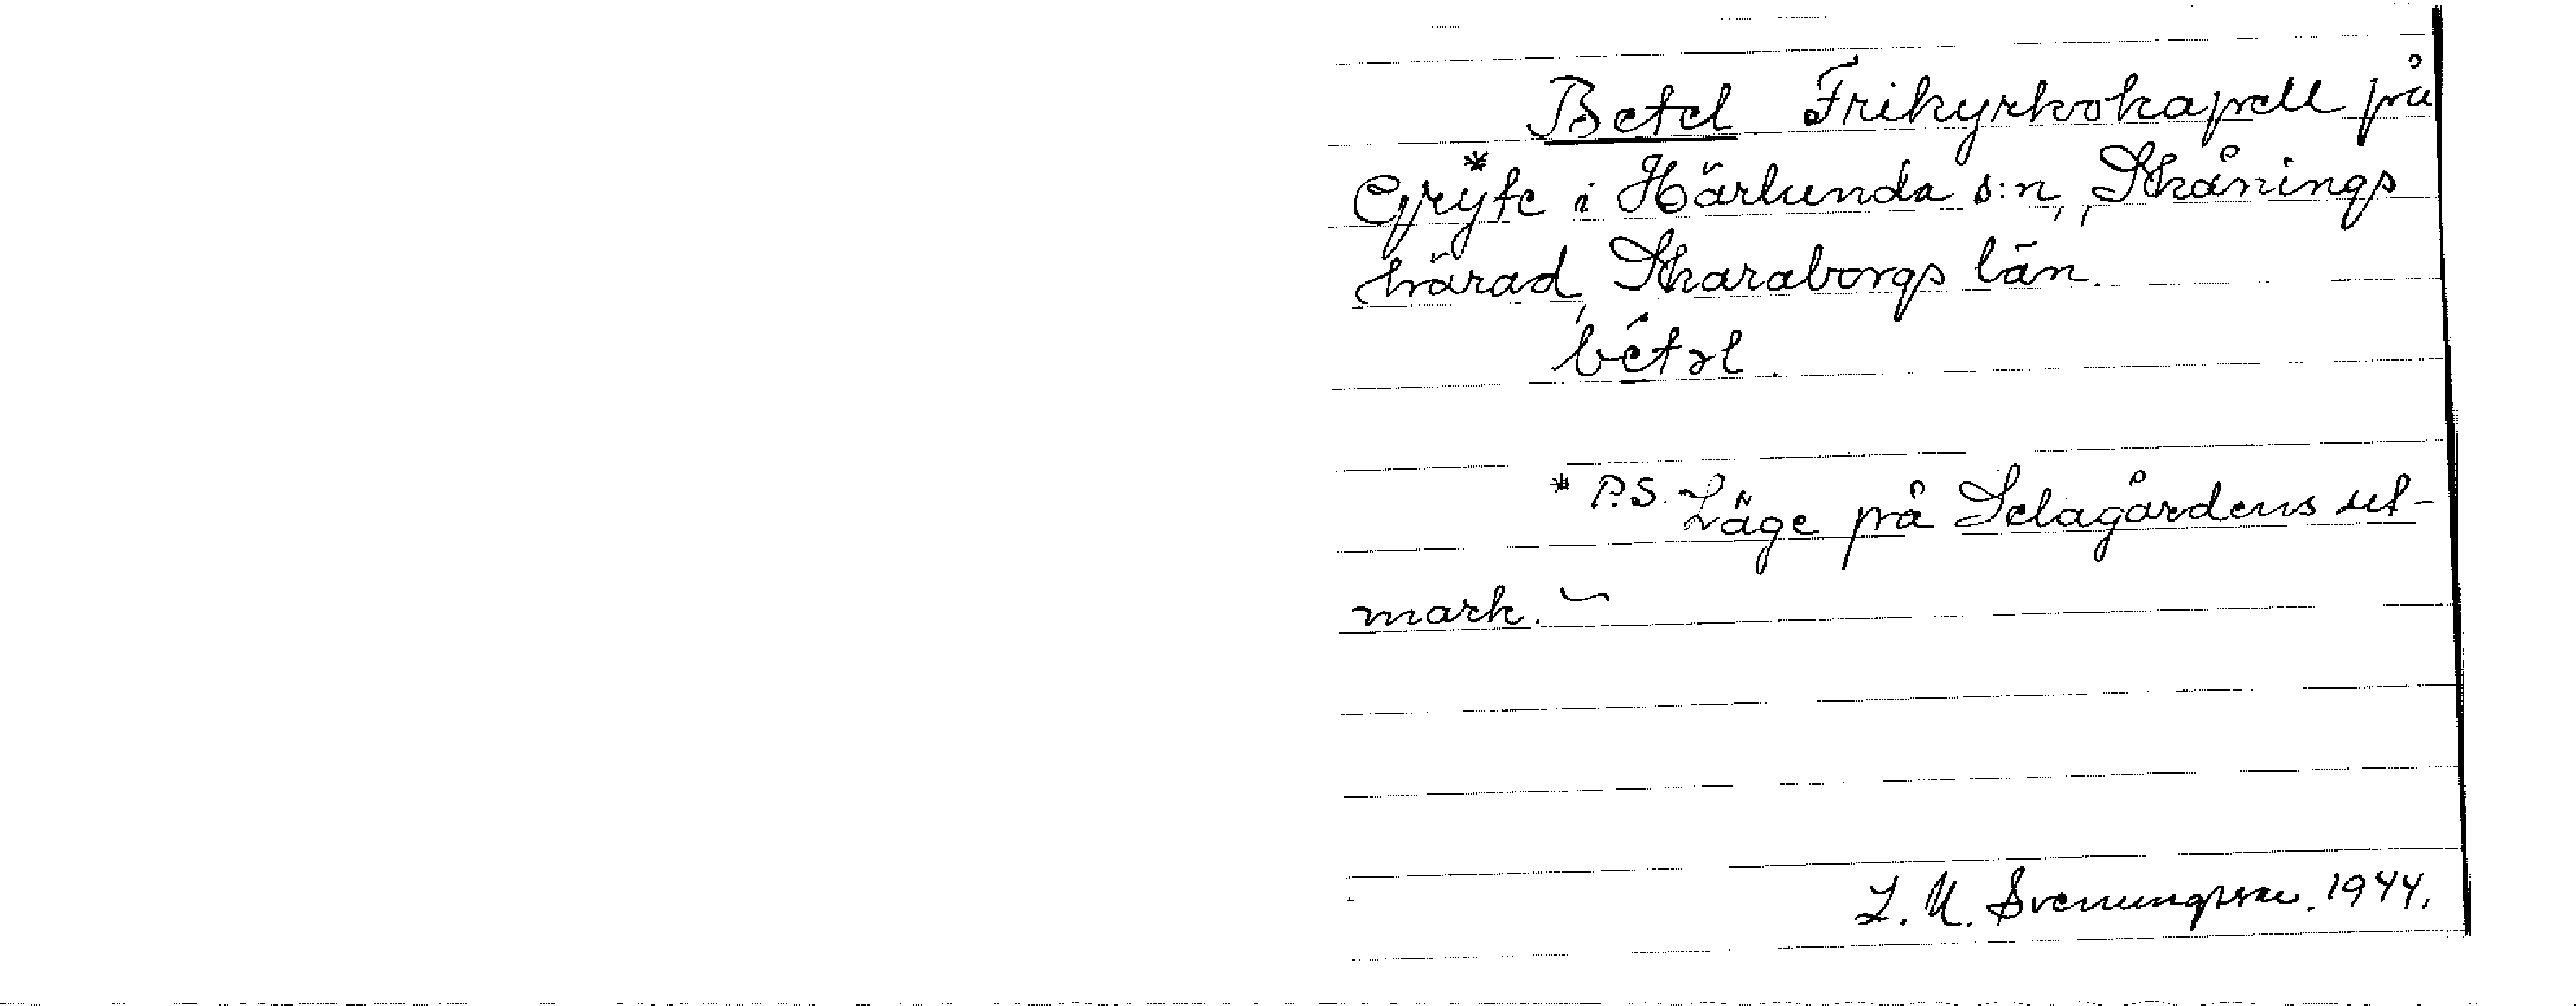 Betel Frikyrkokapell på
Gryte* i Härlunda s:n, Skånings
härad, Skaraborgs län.
bétəl.
* P.S. Läge på Selagårdens ut-
mark. ~
L. U. Svenungsson. 1944.